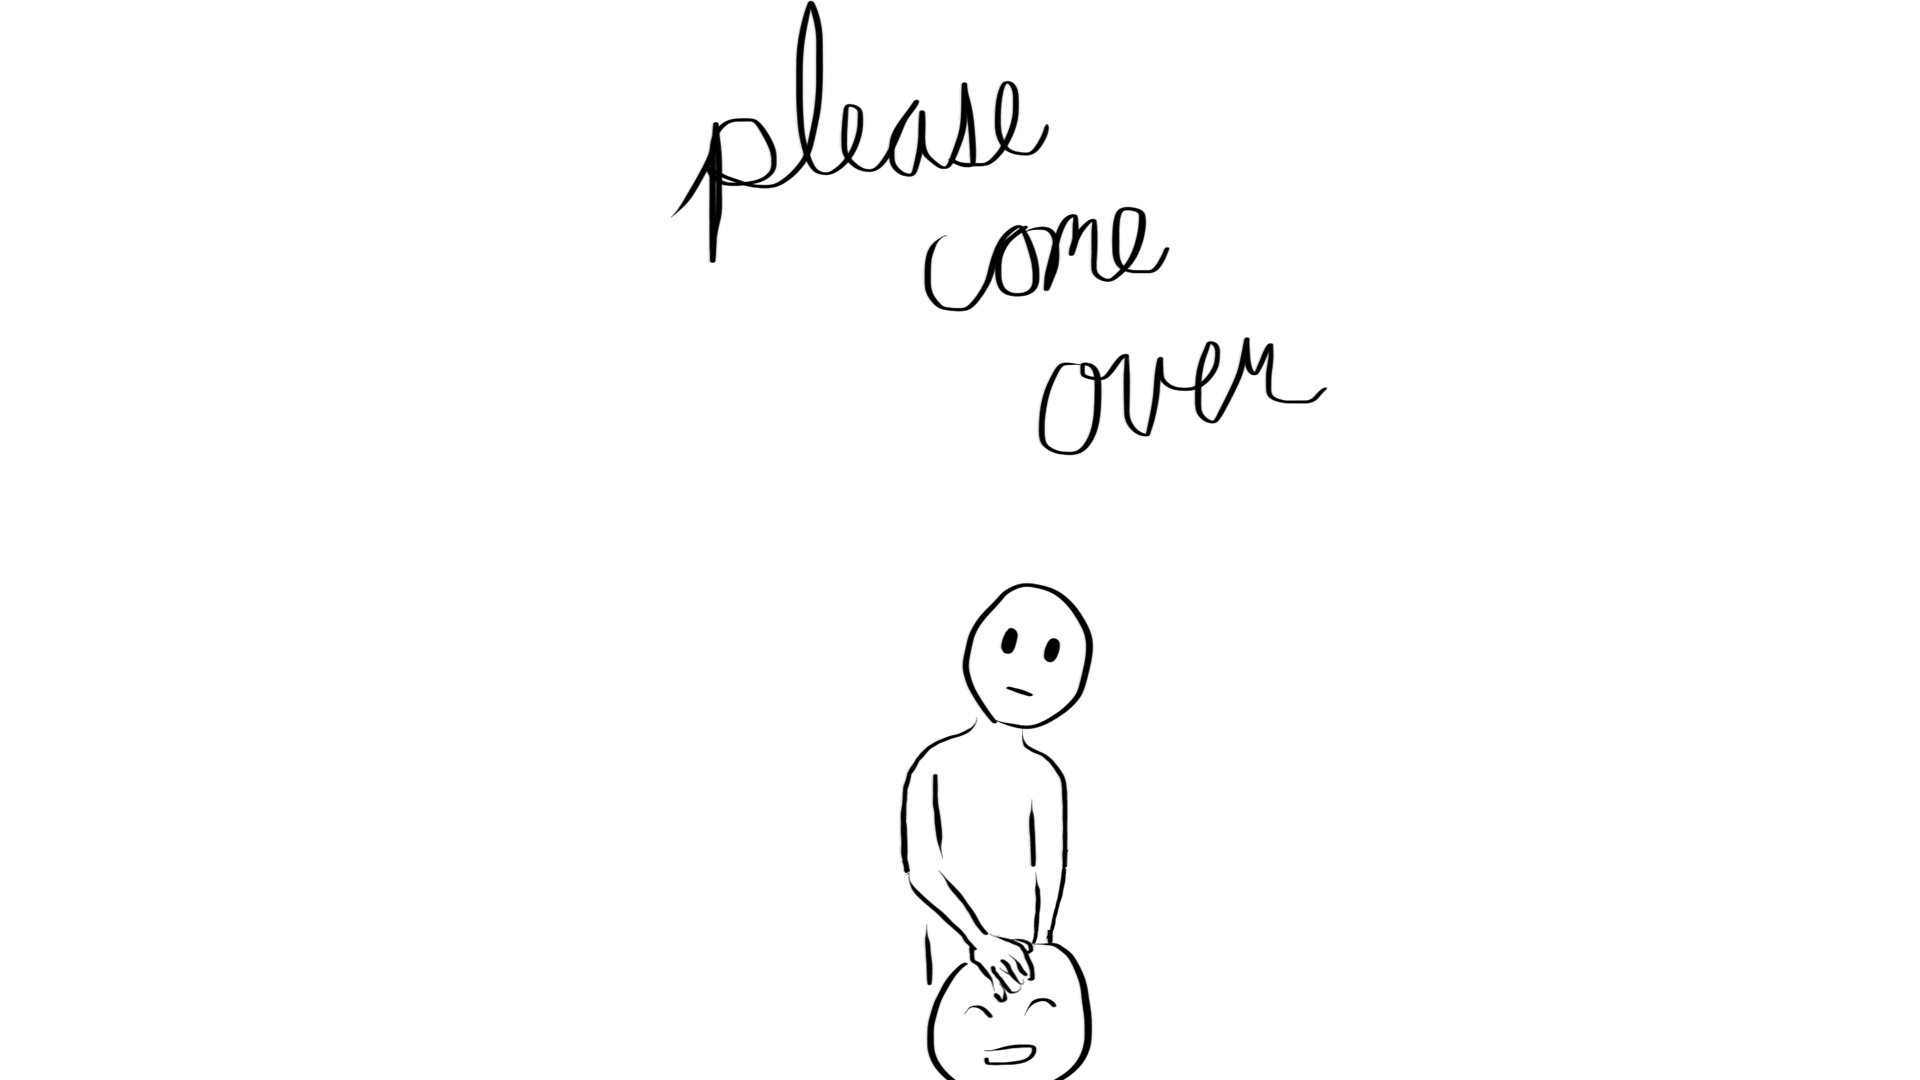 please
come
over